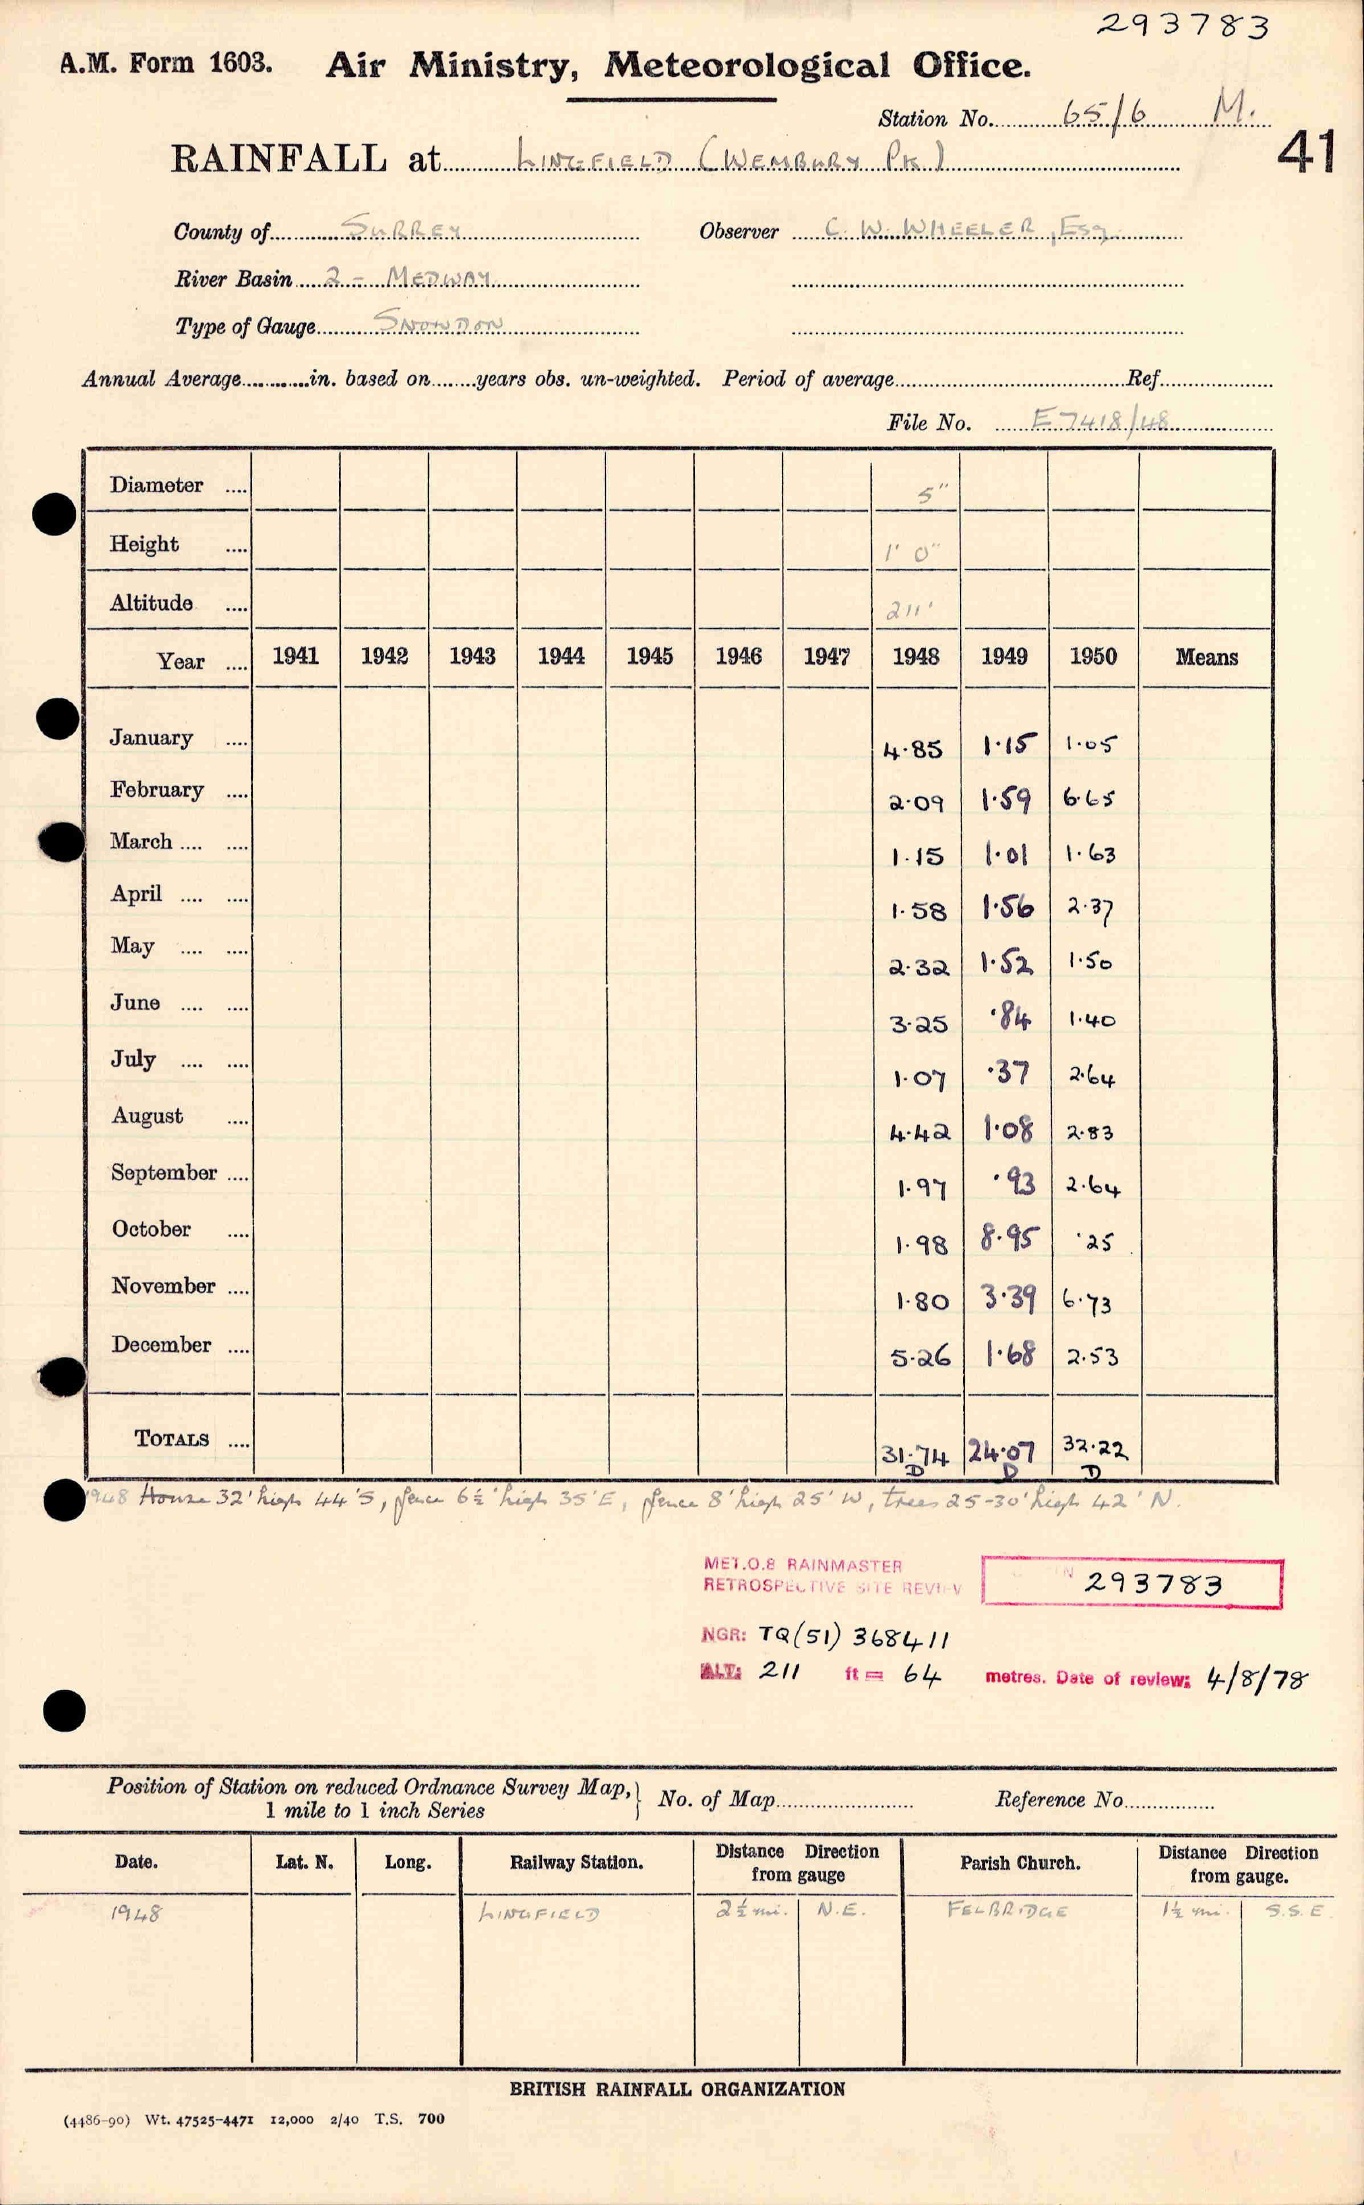 293783
A.M. Form 1603. Air Ministry, Meteorological Office.
Station No. 65/6 M.
41
RAINFALL at LINGFIELD (WEMBURY PK)
County of SURREY Observer C. W. WHEELER, Esq.
River Basin 2 - MEDWAY
Type of Gauge SNOWDON
Annual Average............in. based on........years obs. un-weighted. Period of average........Ref........
File No. E 7418/48
Diameter .... 5"
Height .... 1' 0"
Altitude .... 211'
Year .... 1941 1942 1943 1944 1945 1946 1947 1948 1949 1950 Means
January .... 4.85 1.15 1.05
February .... 2.09 1.59 6.65
March .... .... 1.15 1.01 1.63
April .... .... 1.58 1.56 2.37
May .... .... 2.32 1.52 1.50
June .... .... 3.25 .84 1.40
July .... .... 1.07 .37 2.64
August .... 4.42 1.08 2.83
September .... 1.97 .93 2.64
October .... 1.98 8.95 .25
November .... 1.80 3.39 6.73
December .... 5.26 1.68 2.53
TOTALS .... 31.74 24.07 32.22
D D D
1948 House 32' high 44' S, fence 6½' high 35' E, fence 8' high 25' W, trees 25-30' high 42' N.
MET.O.8 RAINMASTER
RETROSPECTIVE SITE REVIEW 293783
NGR: TQ(51) 368411
ALT: 211 ft = 64 metres. Date of review: 4/8/78
Position of Station on reduced Ordnance Survey Map, } No. of Map........ Reference No........
1 mile to 1 inch Series
Date. Lat. N. Long. Railway Station. Distance from gauge Direction Parish Church. Distance from gauge. Direction
1948 LINGFIELD 2½ mi. N.E. FELBRIDGE 1½ mi. S.S.E.
BRITISH RAINFALL ORGANIZATION
(4486-90) Wt. 47525-4471 12,000 2/40 T.S. 700